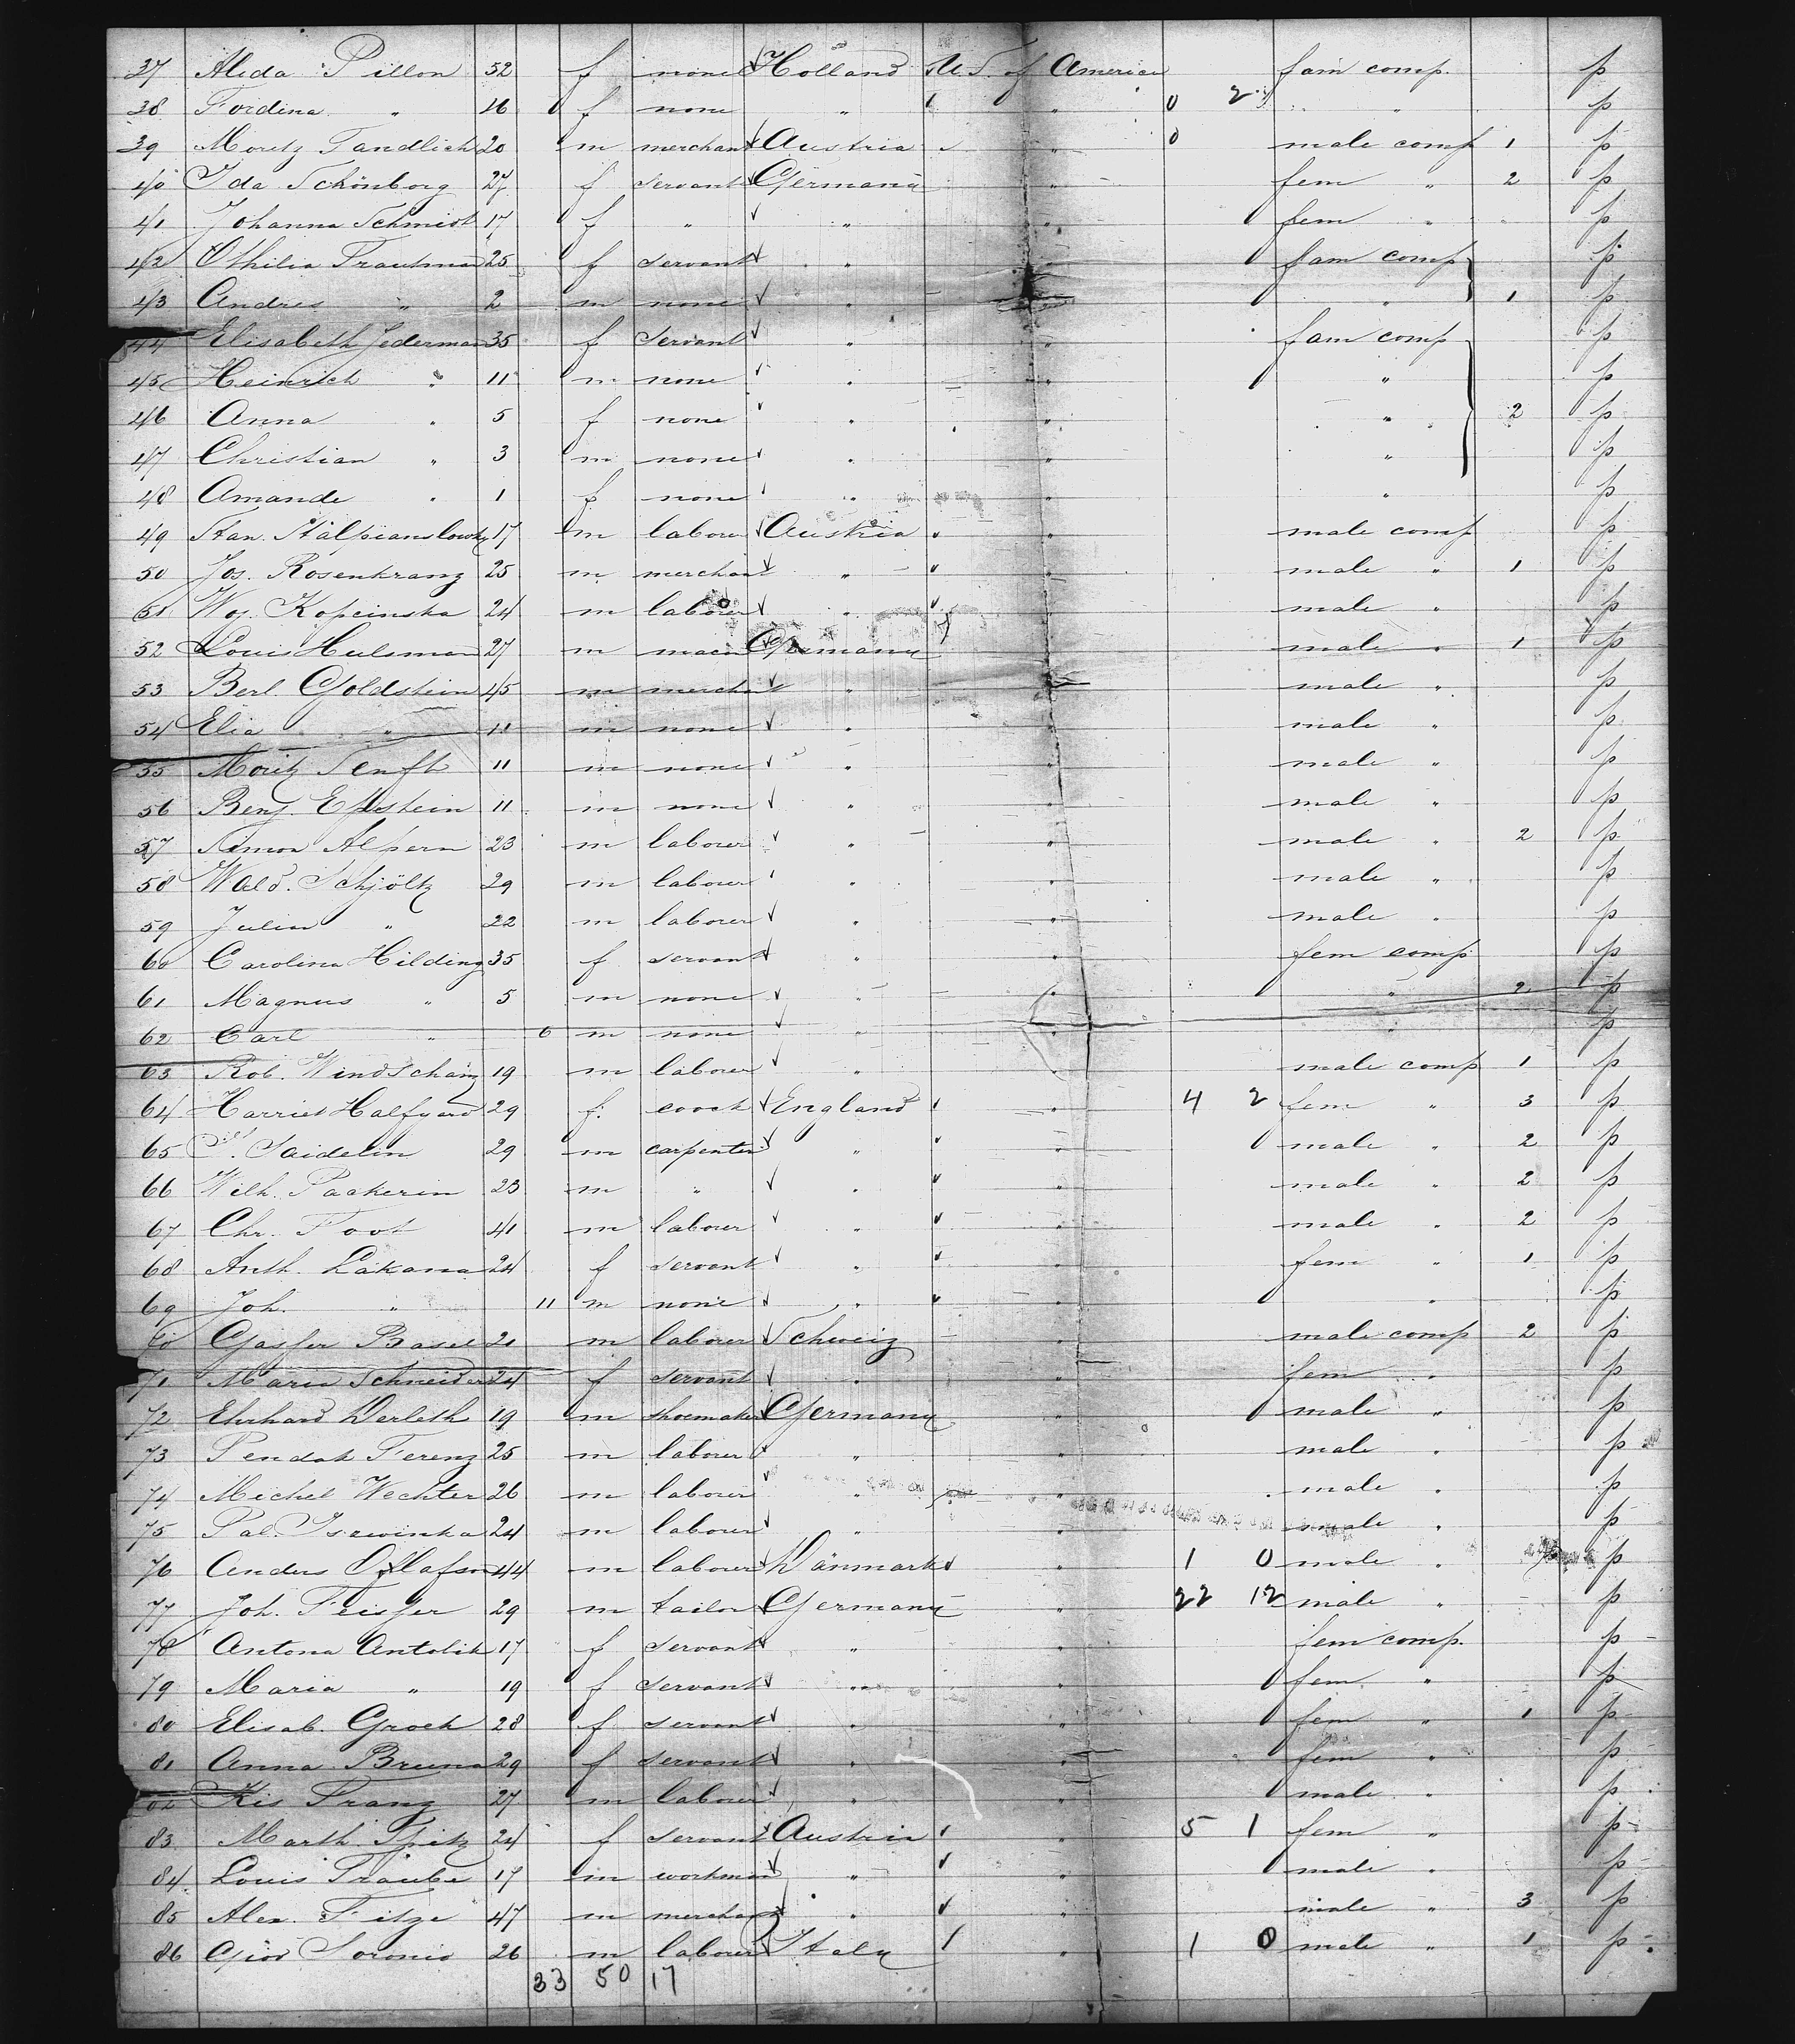 37 Alida Pillon 52 f none Holland U.S. of America fam comp. p
38 Fordina " 16 f none " " 0 2 " " p
39 Moritz Tandlich 20 m merchant Austria " 0 male comp 1 p
40 Ida Schönborg 27 f servant Germany " fem " 2 p
41 Johanna Schmidt 17 f " " " fem " " p
42 Othilia Trautman 25 f servant " " fam comp p
43 Andres " 2 m none " " " 1 p
44 Elisabeth Jederman 35 f servant " " fam comp p
45 Heinrich " 11 m none " " " p
46 Anna " 5 f none " " " 2 p
47 Christian " 3 m none " " " p
48 Amande " 1 f none " " " p
49 Stan. 17 m laborer Austria " male comp p
50 Jos. Rosenkranz 25 m merchant " " male " 1 p
51 Woj. Kopcinska 24 m laborer " " male " p
52 Louis Hulsman 27 m Germany " male " 1 p
53 Berl Goldstein 45 m merchant " " male " p
54 Elia " 11 m none " " male " p
55 Moritz Senft 11 m none " " male " p
56 Benj. Epstein 11 m none " " male " p
57 Simon Alpern 23 m laborer " " male " 2 p
58 Wald. Schjöltz 29 m laborer " " male " p
59 Julius " 22 m laborer " " male " p
60 Carolina Hilding 35 f servant " " fem comp p
61 Magnus " 5 m none " " " 2 p
62 Carl " 6 m none " " " p
63 Rob. Windschanz 19 m laborer " " male comp 1 p
64 Harriet Halfyard 29 f. coock England " 4 2 fem " 3 p
65 Saidelin 29 m carpenter " " male " 2 p
66 Wilh. Paakerin 23 m " " " male " 2 p
67 Chr. Foot 41 m laborer " " male " 2 p
68 Anth. Lakana 24 f servant " " fem " 1 p
69 Joh. " 11 m none " " " p
70 Gasper Basel 20 m laborer Schweiz " male comp 2 p
71 Maria Schneider 24 f servant " " fem " p
72 Ehrhard Derleth 19 m shoemaker Germany " male " p
73 Pendak Ferenz 25 m laborer " " male " p
74 Michel Wechter 26 m laborer " " male " p
75 Pal. 24 m laborer " " male " p
76 Anders Ollafson 44 m laborer Dänmark " 1 0 male " p
77 Joh. Feisfer 29 m tailor Germany " 22 12 male " p
78 Antona Antolik 17 f servant " " fem comp. p
79 Maria " 19 f servant " " fem " p
80 Elisab. Groch 28 f servant " " fem " 1 p
81 Anna Bruna 29 f servant " " fem " p
82 Kis Franz 27 m laborer " " male " p
83 Marth. Spitz 24 f servant Austria " 5 1 fem " p
84 Louis Traube 17 m workman " " male " p
85 Alex. Fitze 47 m merchant " " male " 3 p
86 Giov Soronio 26 m laborer Italy " 1 0 male " 1 p
33 50 17